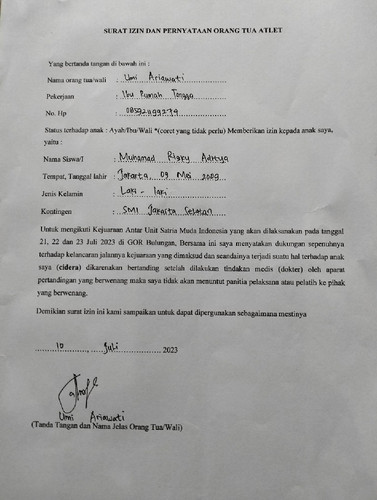 SURAT IZIN DAN PERNYATAAN ORANG TUA ATLET
Yang bertanda tangan di bawah ini :
Nama orang tua/wali : Umi Ariawati
Pekerjaan : Ibu Rumah Tangga
No. Hp :
Status terhadap anak : Ayah/Ibu/Wali *(coret yang tidak perlu) Memberikan izin kepada anak saya,
yaitu :
Nama Siswa/I : Muhamad Rizky Aditya
Tempat, Tanggal lahir : Jakarta, 09 Mei 2009
Jenis Kelamin : Laki - laki
Kontingen : SMI Jakarta Selatan
Untuk mengikuti Kejuaraan Antar Unit Satria Muda Indonesia yang akan dilaksanakan pada tanggal
21, 22 dan 23 Juli 2023 di GOR Bulungan, Bersama ini saya menyatakan dukungan sepenuhnya
terhadap kelancaran jalannya kejuaraan yang dimaksud dan seandainya terjadi suatu hal terhadap anak
saya (cidera) dikarenakan bertanding setelah dilakukan tindakan medis (dokter) oleh aparat
pertandingan yang berwenang maka saya tidak akan menuntut panitia pelaksana atau pelatih ke pihak
yang berwenang.
Demikian surat izin ini kami sampaikan untuk dapat dipergunakan sebagaimana mestinya
10 Juli 2023
Umi Ariawati
(Tanda Tangan dan Nama Jelas Orang Tua/Wali)